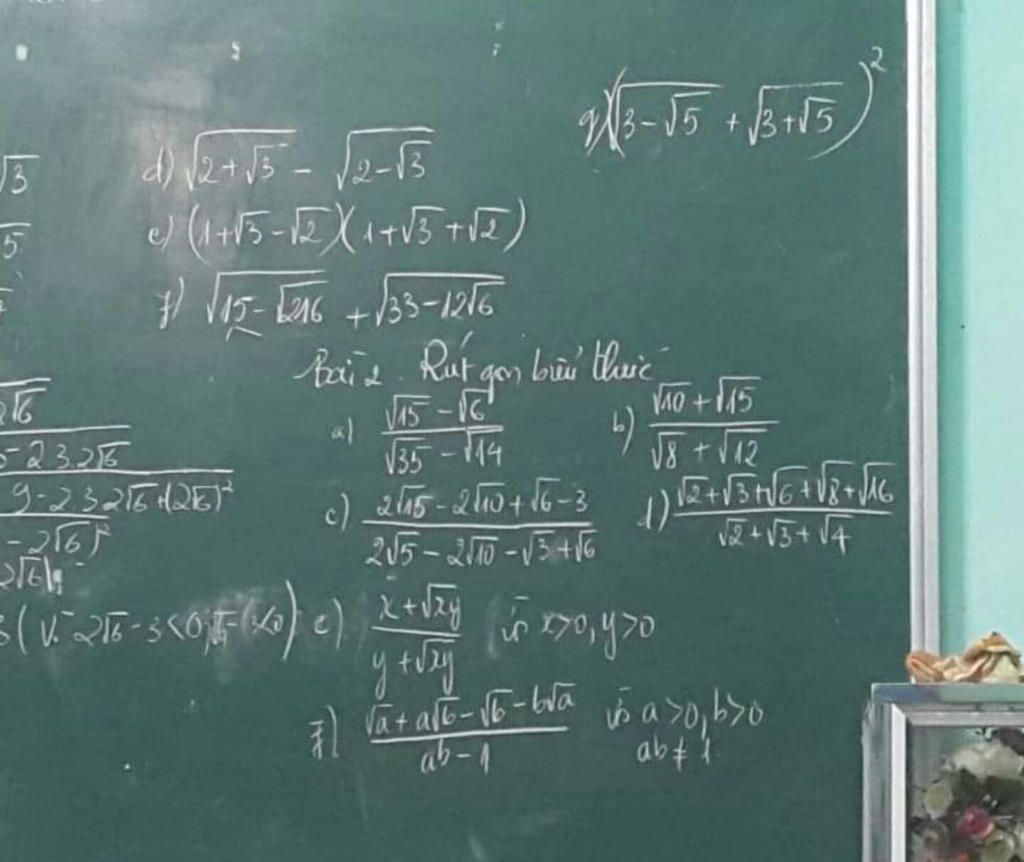 g) (√(3-√5) + √(3+√5))²
√3
d) √(2+√3) - √(2-√3)
√5
e) (1+√3-√2)(1+√3+√2)
f) √(15-√216) + √(33-12√6)
Bài 2. Rút gọn biểu thức
a) (√15-√6)/(√35-√14)
b) (√10+√15)/(√8+√12)
2√6
5-2.3.2√6
9-2.3.2√6+(2√6)²
-2√6)²
c) (2√15-2√10+√6-3)/(2√5-2√10-√3+√6)
d) (√2+√3+√6+√8+√16)/(√2+√3+√4)
2√6-3<0
e) (x+√xy)/(y+√xy) với x>0, y>0
f) (√a+a√b-√b-b√a)/(ab-1) với a>0, b>0
ab≠1